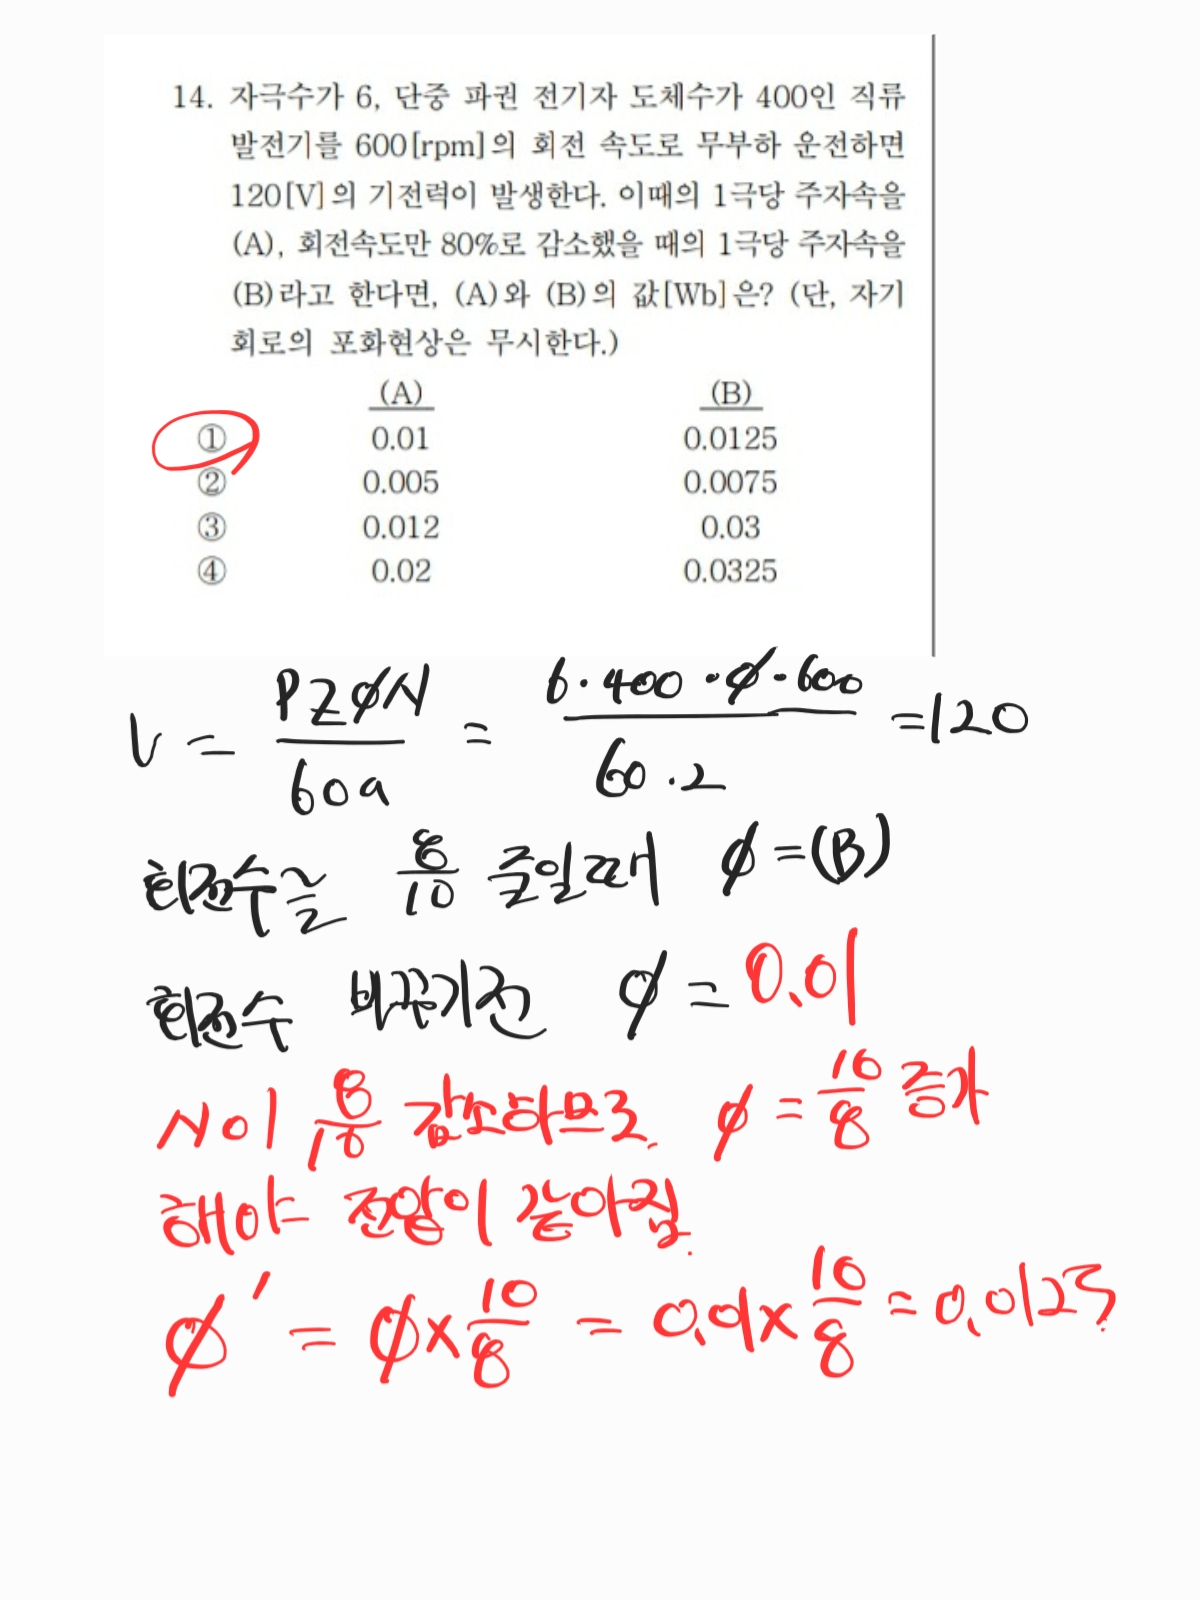 14. 자극수가 6, 단중 파권 전기자 도체수가 400인 직류
발전기를 600[rpm]의 회전 속도로 무부하 운전하면
120[V]의 기전력이 발생한다. 이때의 1극당 주자속을
(A), 회전속도만 80%로 감소했을 때의 1극당 주자속을
(B)라고 한다면, (A)와 (B)의 값[Wb]은? (단, 자기
회로의 포화현상은 무시한다.)
(A) (B)
① 0.01 0.0125
② 0.005 0.0075
③ 0.012 0.03
④ 0.02 0.0325
V = PZφN / 60a = 6·400·φ·600 / 60·2 = 120
회전수를 8/10 줄일때 φ = (B)
회전수 바꾸기전 φ = 0.01
N이 8/10 감소하므로. φ = 10/8 증가
해야 전압이 같아짐.
φ' = φ × 10/8 = 0.01 × 10/8 = 0.0125